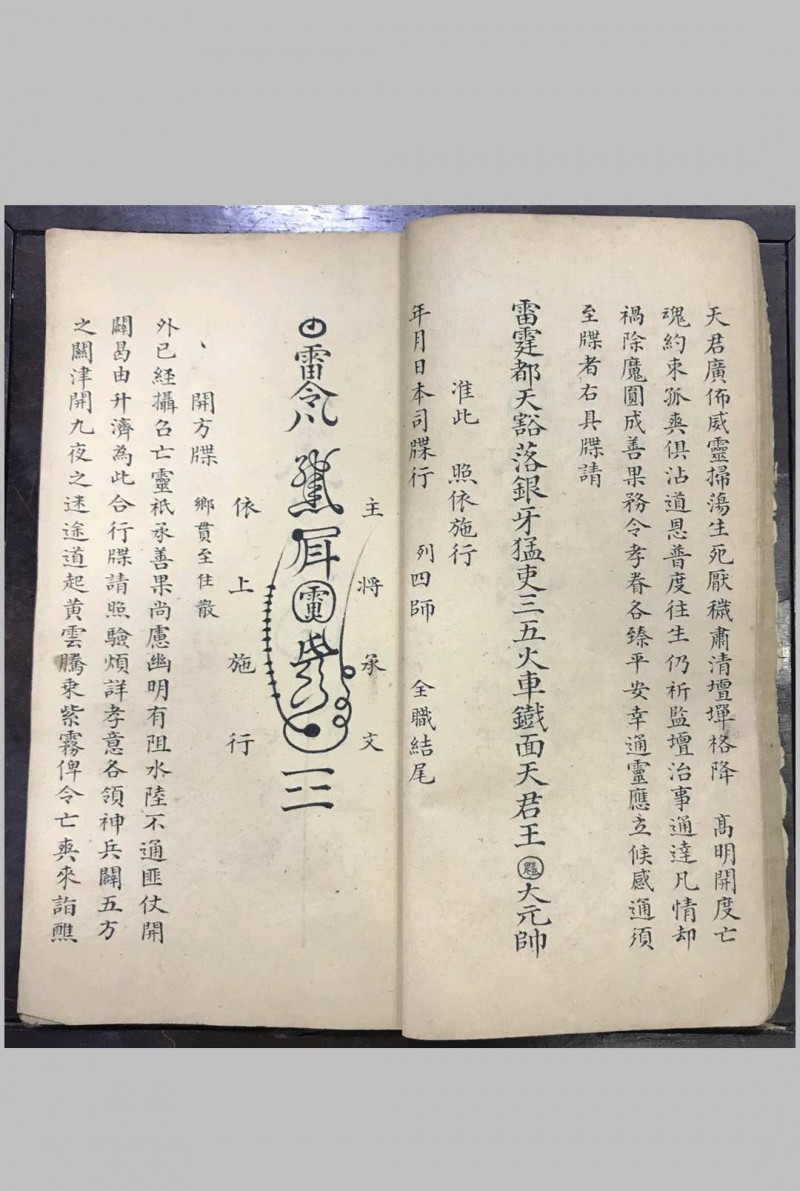 天君廣佈威靈掃蕩生死厭穢肅清壇墠格降 高明開度亡
魂約束孤爽俱沾道恩普度往生仍祈監壇治事通達凡情却
禍除魔圓成善果務令孝眷各臻平安幸通靈應立候感通須
至牒者右具牒請
雷霆都天豁落銀牙猛吏三五火車鐵面天君王 大元帥
准此 照依施行
年月日本司牒行 列四師 全職結尾
主將承文
雷令
依上施行
開方牒 鄉貫至住散
外已經攝召亡靈祇承善果尚慮幽明有阻水陸不通匪仗開
闢曷由升濟為此合行牒請照驗煩詳孝意各領神兵闢五方
之關津開九夜之迷途道起黃雲騰乘紫霧俾令亡爽來詣醮